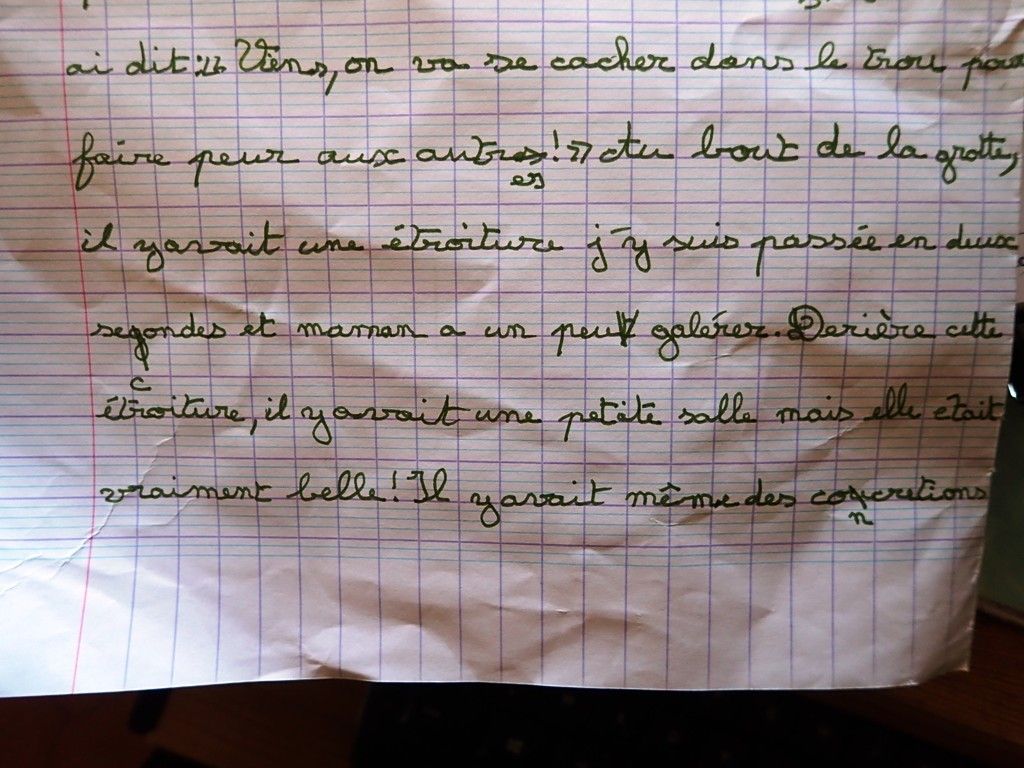 ai dit : « Viens, on va se cacher dans le trou pour
faire peur aux autres ! » Au bout de la grotte,
il y avait une étroiture j'y suis passée en deux
secondes et maman a un peu galérer. Derière cette
étroiture, il y avait une petite salle mais elle etait
vraiment belle ! Il y avait même des concretions